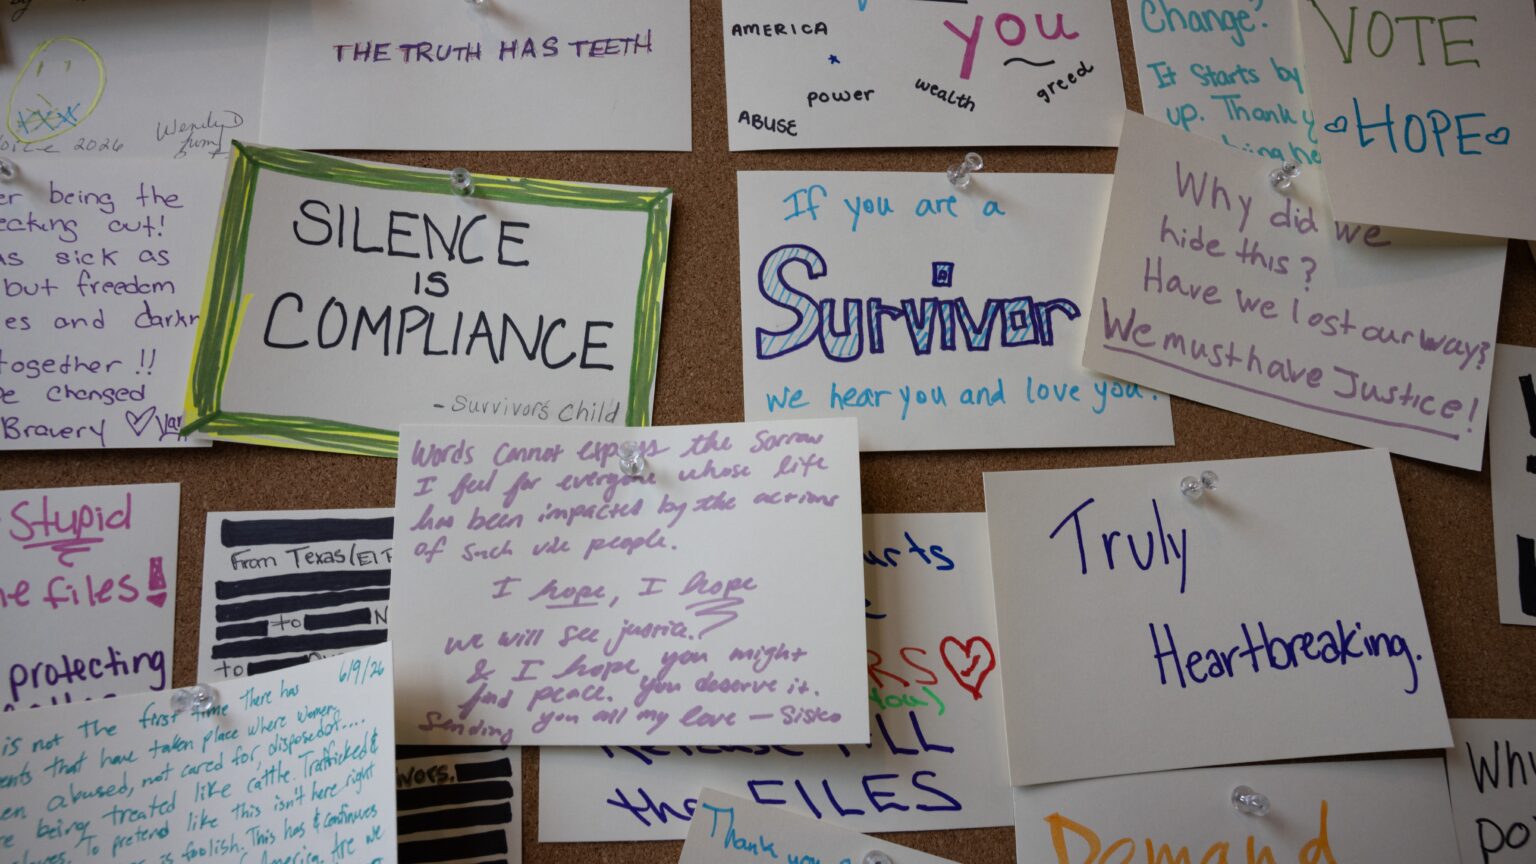 THE TRUTH HAS TEETH
2026
Wendy D
er being the
eaking out!
as sick as
but freedom
es and darkn
together !!
e changed
Bravery
SILENCE
IS
COMPLIANCE
- Survivor's Child
you
AMERICA
power
wealth
greed
ABUSE
Change?
It starts by
up. Thank y
being he
VOTE
HOPE
If you are a
Survivor
we hear you and love you.
Why did we
hide this?
Have we lost our way?
We must have Justice!
Stupid
he files!
protecting
From Texas (EI P
to
N
to
Words cannot express the sorrow
I feel for everyone whose life
has been impacted by the actions
of such vile people.
I hope, I hope
we will see justice.
& I hope you might
find peace. You deserve it.
Sending you all my love — Siska
urts
RS
you)
Release ALL
the FILES
Truly
Heartbreaking.
6/9/26
is not the first time there has
ents that have taken place where women
en abused, not cared for, disposed of....
re being treated like cattle. Trafficked &
To pretend like this isn't here right
is foolish. This has & continues
America. Are we
vors.
Thank you
Demand
Why
po